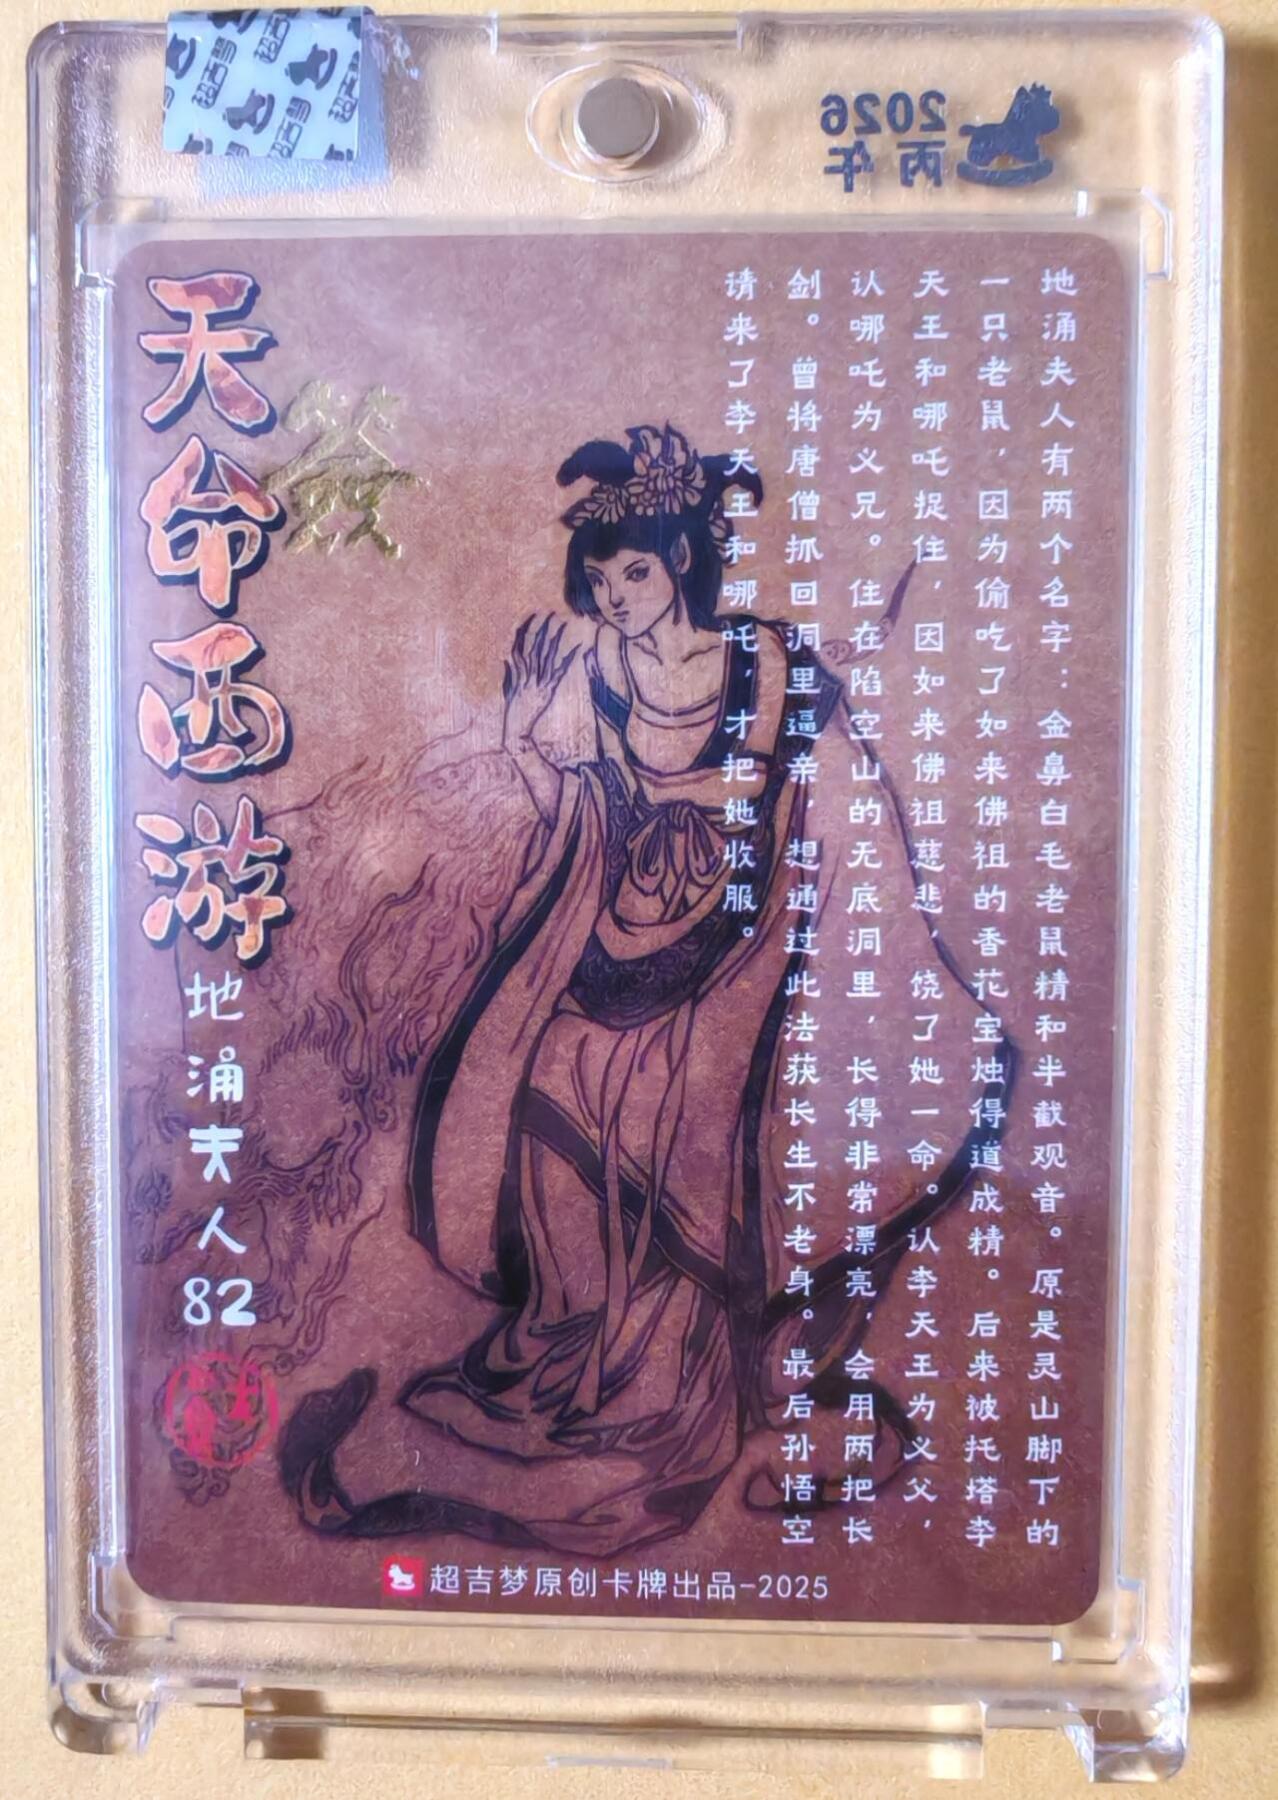 超吉梦
2026
丙午
天命西游
签
地涌夫人82
地涌夫人有两个名字：金鼻白毛老鼠精和半截观音。原是灵山脚下的
一只老鼠，因为偷吃了如来佛祖的香花宝烛得道成精。后来被托塔李
天王和哪吒捉住，因如来佛祖慈悲，饶了她一命。认李天王为义父，
认哪吒为义兄。住在陷空山的无底洞里，长得非常漂亮，会用两把长
剑。曾将唐僧抓回洞里逼亲，想通过此法获长生不老身。最后孙悟空
请来了李天王和哪吒，才把她收服。
超吉梦原创卡牌出品-2025